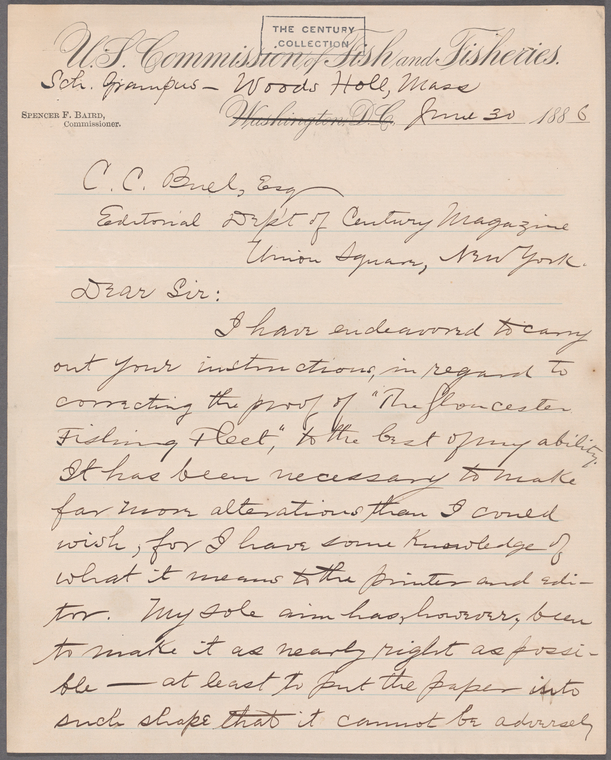 THE CENTURY
COLLECTION
U.S. Commission of Fish and Fisheries.
Sch. Grampus — Woods Holl, Mass
SPENCER F. BAIRD,
Commissioner.
Washington, D.C. June 30 1886
C. C. Buel, Esq
Editorial Dep't of Century Magazine
Union Square, New York.
Dear Sir:
I have endeavored to carry
out your instructions, in regard to
correcting the proof of "The Gloucester
Fishing Fleet", to the best of my ability.
It has been necessary to make
far more alterations than I could
wish, for I have some knowledge of
what it means to the printer and edi-
tor. My sole aim has, however, been
to make it as nearly right as possi-
ble — at least to put the paper into
such shape that it cannot be adversely